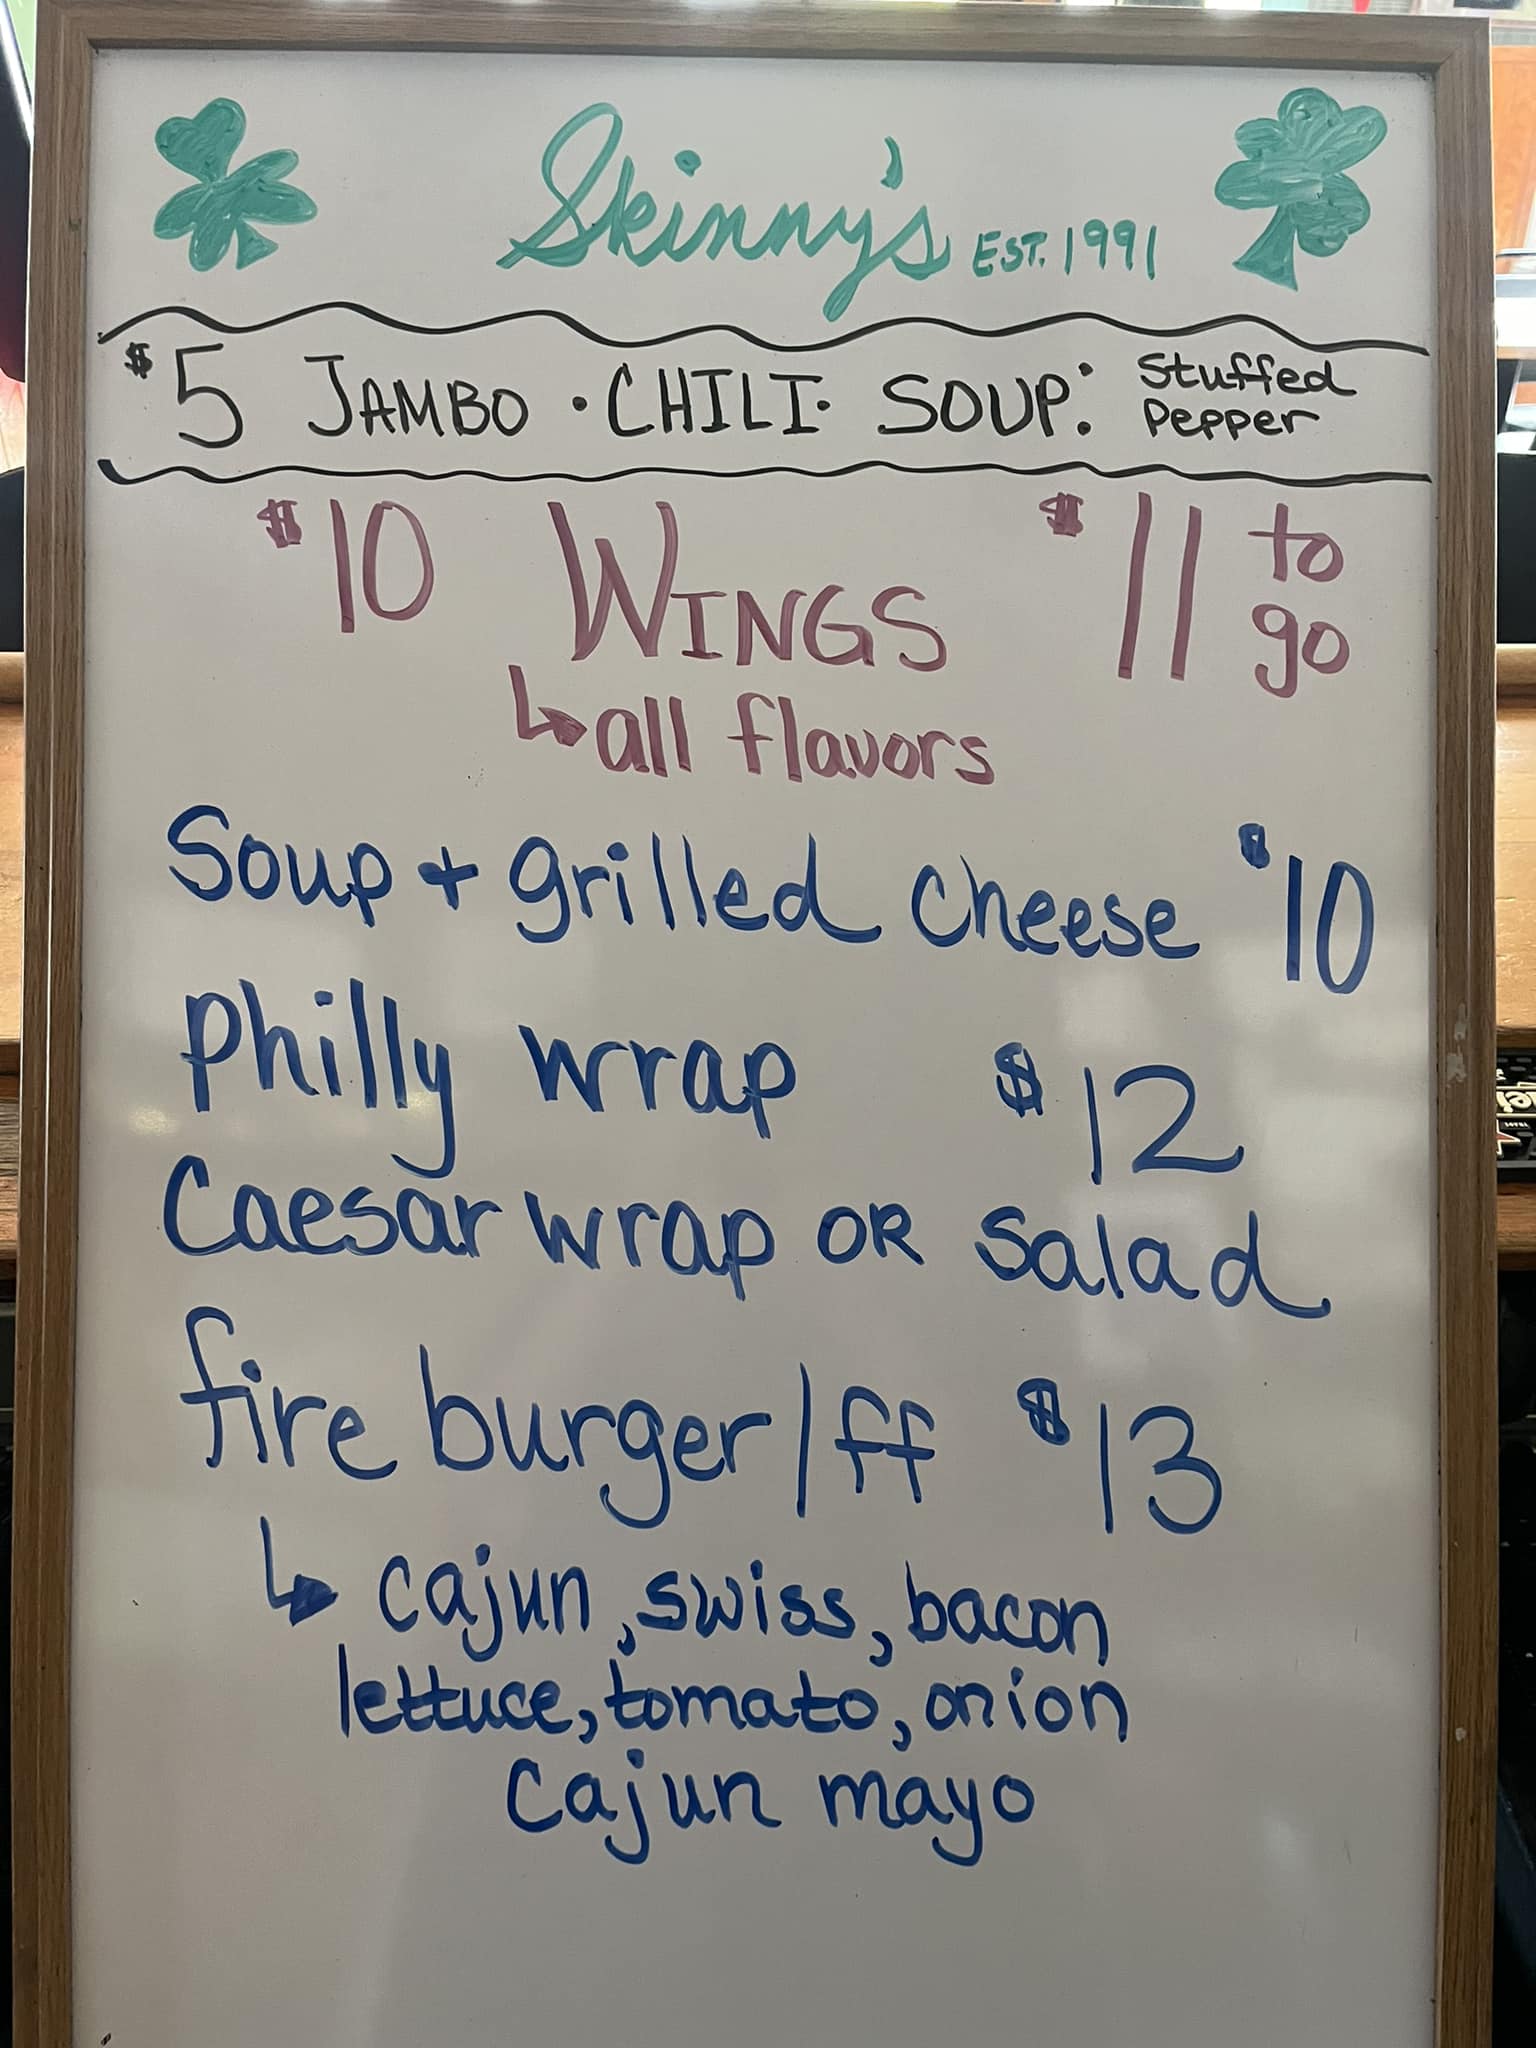 Skinny's EST. 1991
$5 JAMBO · CHILI · SOUP: Stuffed Pepper
$10 WINGS $11 to go
all flavors
Soup + grilled cheese $10
Philly wrap $12
Caesar wrap OR salad
fire burger/ff $13
cajun, swiss, bacon
lettuce, tomato, onion
Cajun mayo